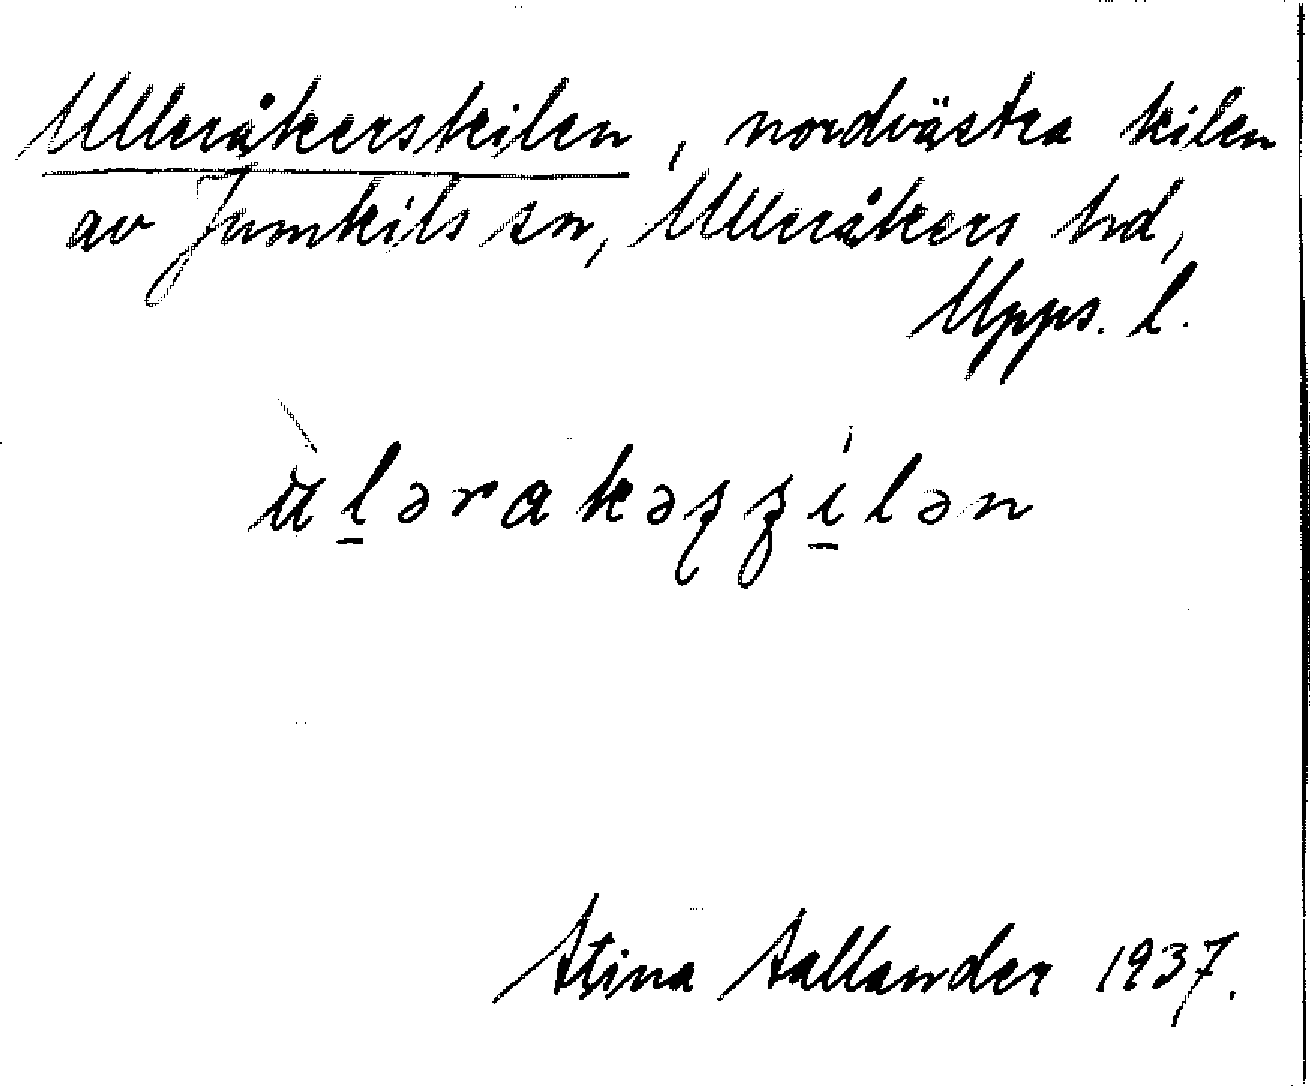 Ulleråkerskilen, nordvästra kilen
av Jumkils sn, Ulleråkers hd,
Upps. l.
Stina Sallander 1937.